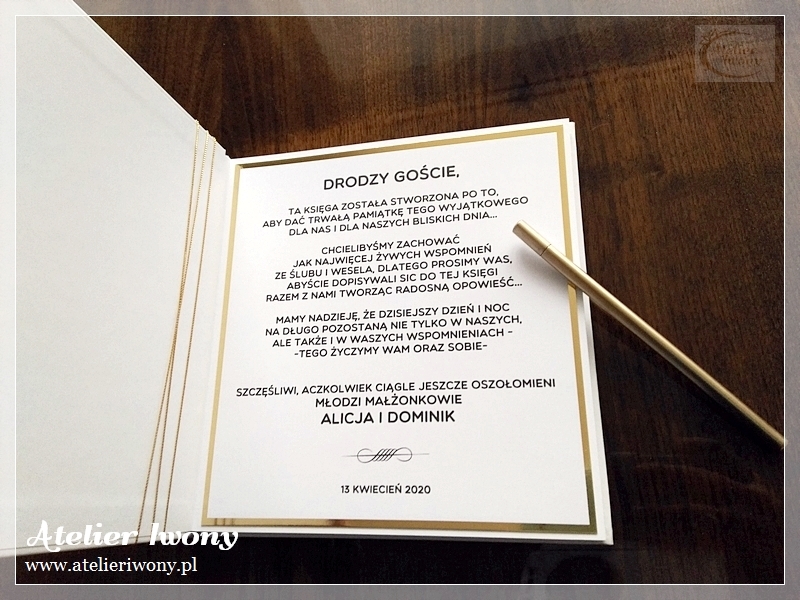 DRODZY GOŚCIE,
TA KSIĘGA ZOSTAŁA STWORZONA PO TO,
ABY DAĆ TRWAŁĄ PAMIĄTKĘ TEGO WYJĄTKOWEGO
DLA NAS I DLA NASZYCH BLISKICH DNIA...
CHCIELIBYŚMY ZACHOWAĆ
JAK NAJWIĘCEJ ŻYWYCH WSPOMNIEŃ
ZE ŚLUBU I WESELA, DLATEGO PROSIMY WAS,
ABYŚCIE DOPISYWALI SIC DO TEJ KSIĘGI
RAZEM Z NAMI TWORZĄC RADOSNĄ OPOWIEŚĆ...
MAMY NADZIEJĘ, ŻE DZISIEJSZY DZIEŃ I NOC
NA DŁUGO POZOSTANĄ NIE TYLKO W NASZYCH,
ALE TAKŻE I W WASZYCH WSPOMNIENIACH -
-TEGO ŻYCZYMY WAM ORAZ SOBIE-
SZCZĘŚLIWI, ACZKOLWIEK CIĄGLE JESZCZE OSZOŁOMIENI
MŁODZI MAŁŻONKOWIE
ALICJA I DOMINIK
13 KWIECIEŃ 2020
Atelier Iwony
www.atelieriwony.pl
Atelier
Iwony